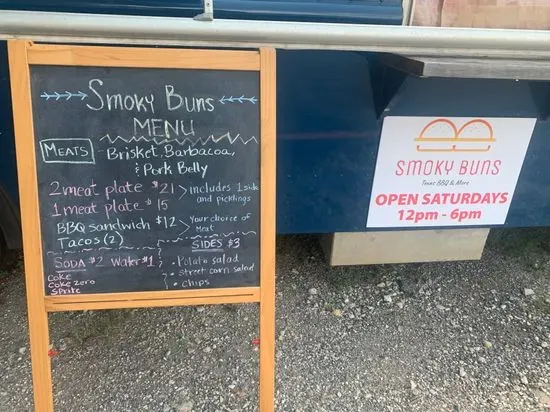 Smoky Buns
MENU
MEATS Brisket, Barbacoa,
& Pork Belly
2 meat plate $21 includes 1 side
1 meat plate $15 and picklings
BBQ sandwich $12 Your choice of
Tacos (2) Meat
SIDES $3
SODA $2 Water $1
Coke
Coke zero
Sprite
• Potato salad
• street corn salad
• chips
SMOKY BUNS
Texas BBQ & More
OPEN SATURDAYS
12pm - 6pm